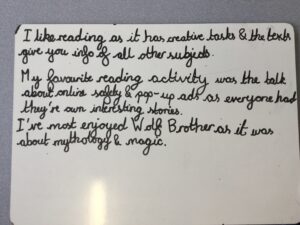 I like reading as it has creative tasks & the texts
give you info of all other subjects.
My favourite reading activity was the talk
about online safety & pop-up ads as everyone had
they're own interesting stories.
I've most enjoyed Wolf Brother as it was
about mythology & magic.